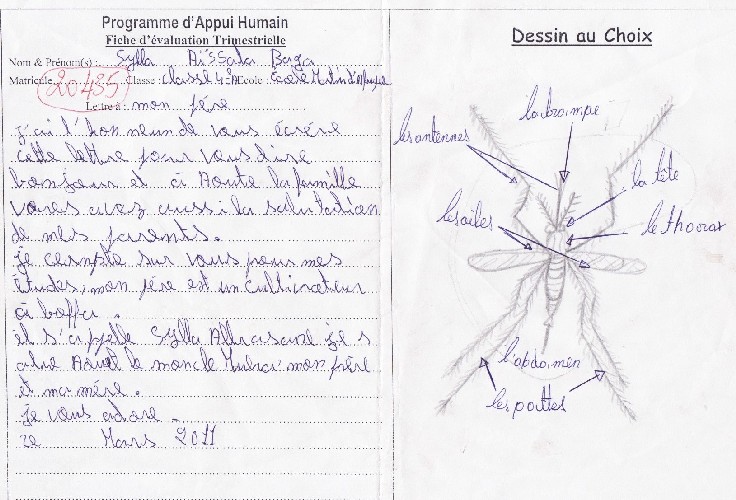 Programme d'Appui Humain
Fiche d'évaluation Trimestrielle
Nom & Prénom(s) : Sylla Aïssata Baga
Matricule 20435 Classe : classe 4èA Ecole
Lettre à : mon père
j'ai l'honneur de vous écrére
cette lettre pour vous dire
bonjour et à Aoute la famille
voures avez aussi la salutation
de mes parents.
je compte sur vous pour mes
études, mon père est un cultivateur
à boffa.
il s'appelle Sylla Alhassane je s
alue Aout le monde mon frère
et ma mére.
je vous adore.
ze Mars 2011
Dessin au Choix
la trompe
les antennes
la tête
les ailes
le thorax
l'abdomen
les pattes